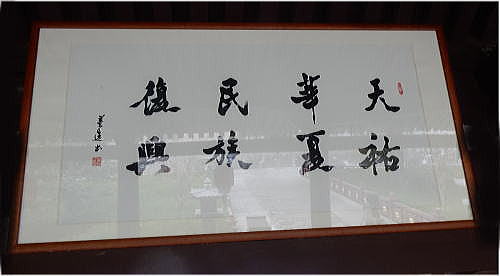 天祐
華夏
民族
復興